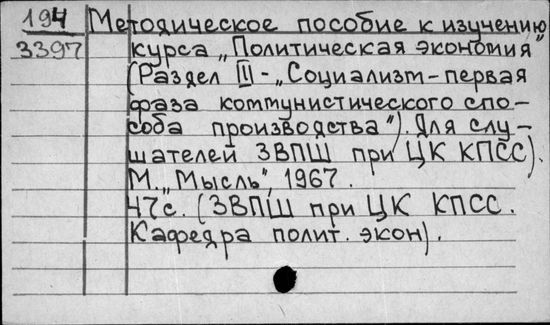 194 Методическое пособие к изучению
3397 курса „Политическая экономия"
(Раздел III - „Социализм - первая
фаза коммунистического спо-
соба производства"). Для слу-
шателей ЗВПШ при ЦК КПСС).
М. „Мысль", 1967.
47с. (ЗВПШ при ЦК КПСС.
Кафедра полит. экон).